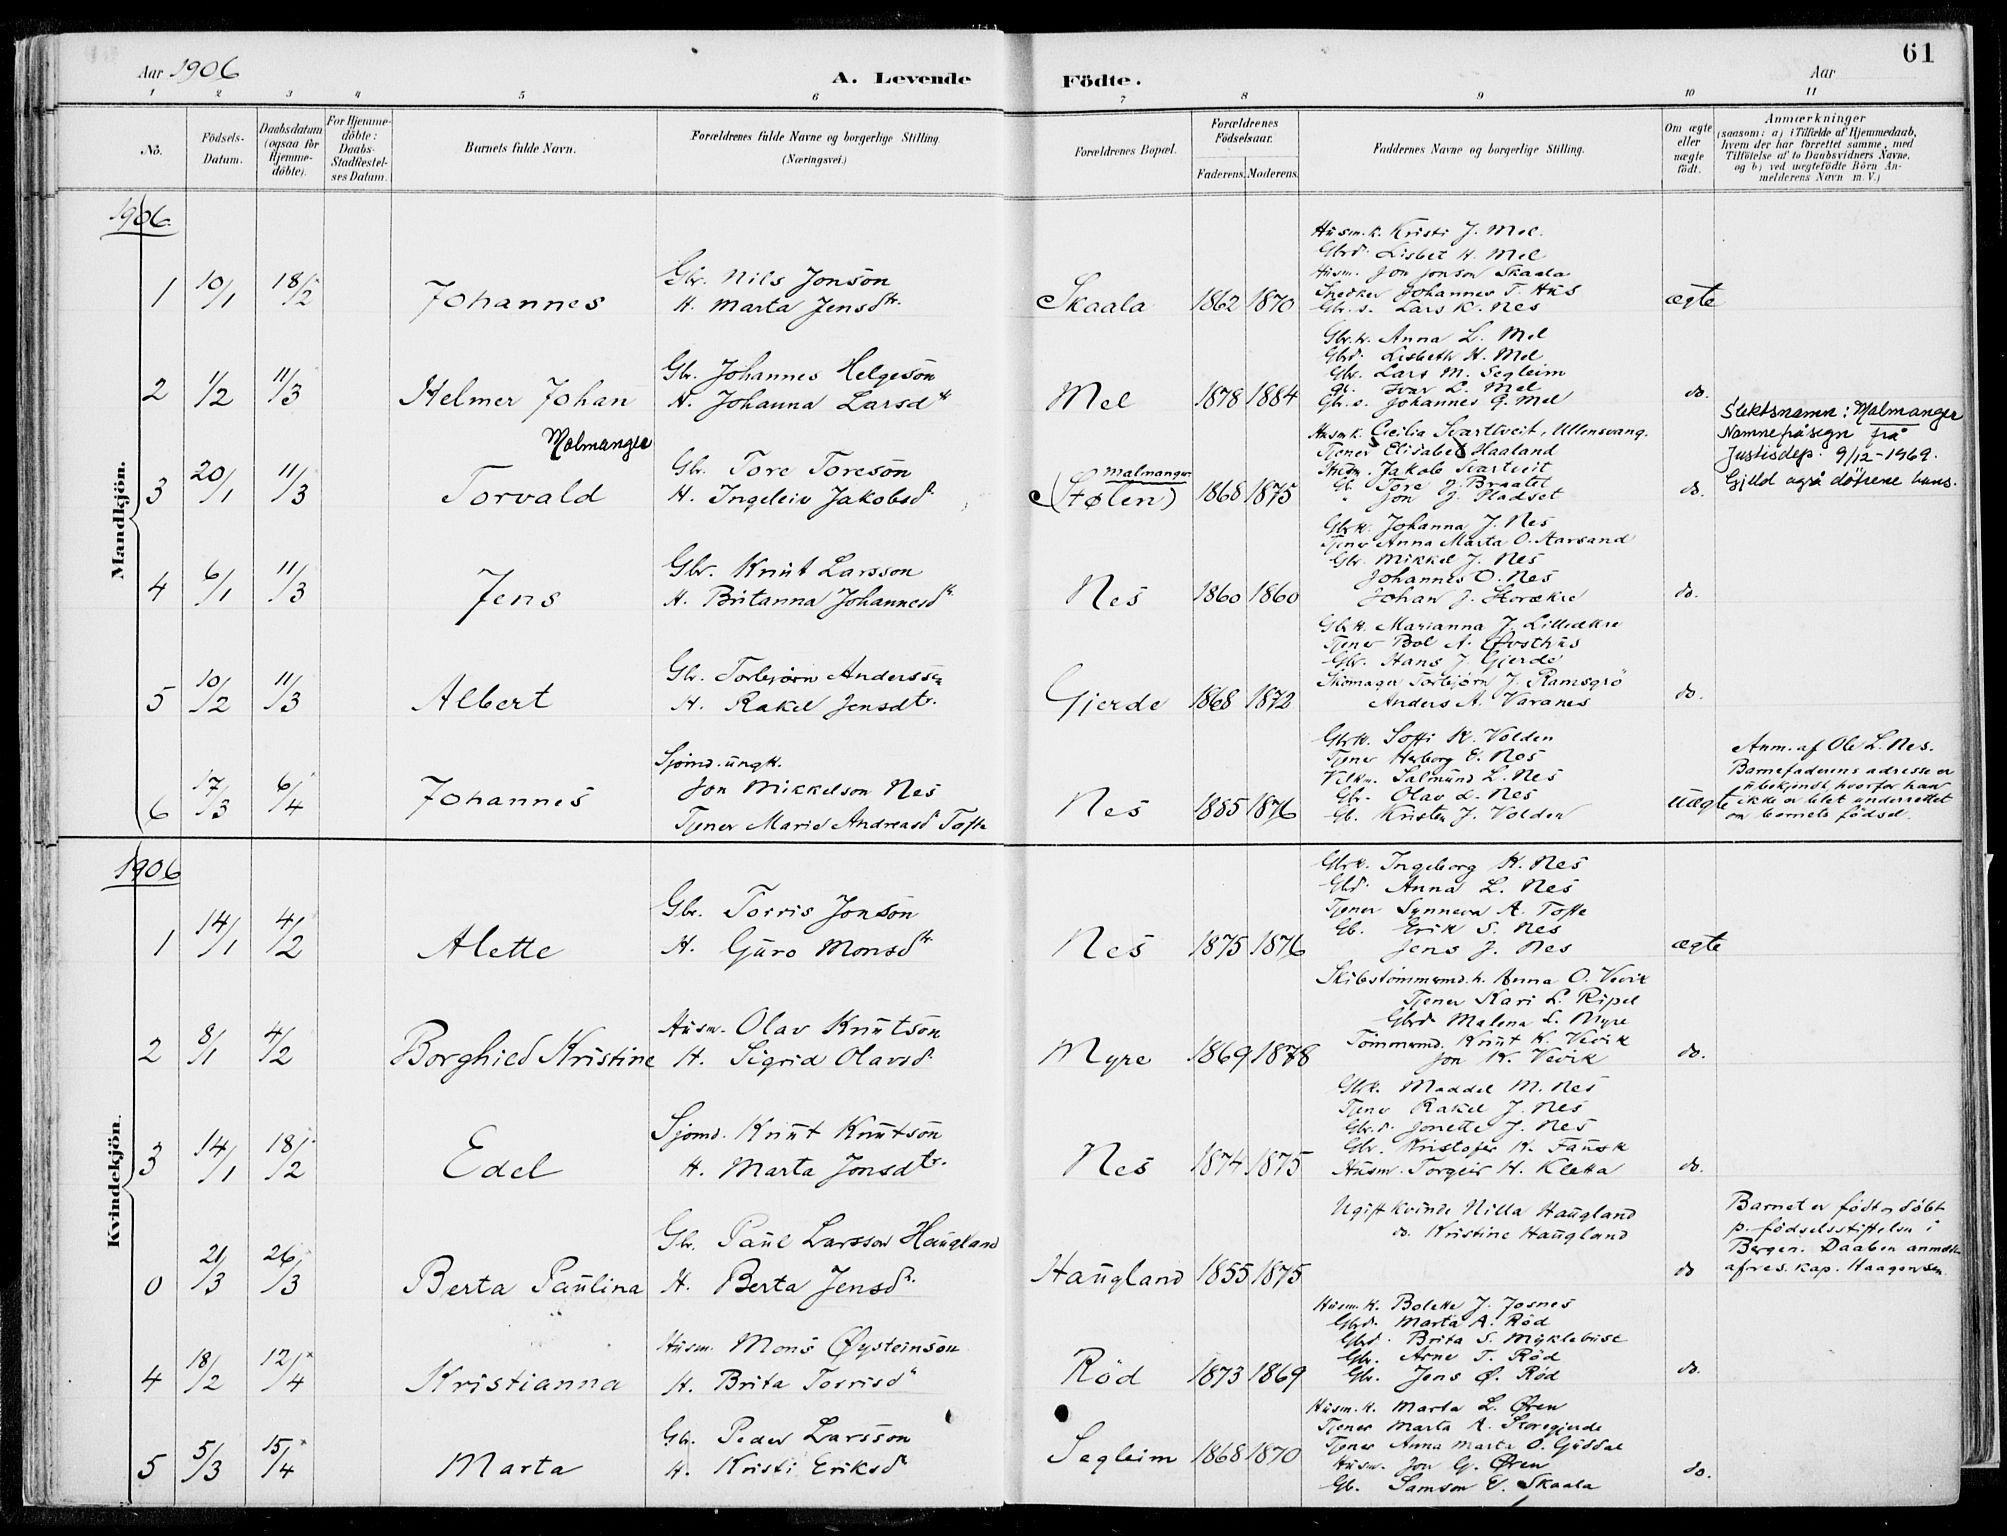 61
Aar 1906
A. Levende Födte.
Aar
1 2 3 4 5 6 7 8 9 10 11
No.
Födsels-Datum.
Daabsdatum (ogsaa for Hjemme-döbte).
For Hjemme-döbte: Daabs-Stadfæstel-ses Datum.
Barnets fulde Navn.
Forældrenes fulde Navne og borgerlige Stilling.
(Næringsvei.)
Forældrenes Bopæl.
Forældrenes Födselsaar.
Faderens. Moderens.
Faddernes Navne og borgerlige Stilling.
Om ægte eller uægte födt.
Anmærkninger
(saasom: a) i Tilfælde af Hjemmedaab,
hvem der har forrettet samme, med
Tilföielse af to Daabsvidners Navne,
og b) ved uægtefödte Börn An-
melderens Navn m. V.)
Mandkjön.
1906.
Husm. k. Kristi J. Mel.
Gbrd. Lisbet H. Mel
Husm. Jon Jonson Skaala
Snedker Johannes T. Hus
Gbr. s. Lars K. Nes
1 10/1 18/2 Johannes
Gbr. Nils Jonson
H. Marta Jensdtr.
Skaala 1862 1870 ægte
Gbr. k. Anna L. Mel
Gbrd. Lisbeth H. Mel
Gbr. Lars M. Segleim
Ivar L. Mel
Gbr. s. Johannes G. Mel
2 1/2 11/3 Helmer Johan
Gbr. Johannes Helgeson
H. Johanna Larsdtr
Mel 1878 1884 do.
Malmanger
Husm. k. Cecilia Svartveit, Ullensvang.
Tjener Elisabet Haaland
Jakob Svartveit
Gb. Tore J. Braatet
" Jon J. Pladset
3 20/1 11/3 Torvald
Gbr. Tore Toreson
H. Ingeleiv Jakobsd.
Malmanger
(Stølen) 1868 1875 do.
Slektsnamn: Malmanger
Namnepåsegn frå
Justisdep. 9/12-1969.
Gjeld også døtrene hans.
Gbrk. Johanna J. Nes
Tjener Anna Marta O. Aarsand
Gbr. Mikkel J. Nes
Johannes O. Nes
Johan J. Storækre
4 6/1 11/3 Jens
Gbr. Knut Larsson
H. Britanna Johannesdtr.
Nes 1860 1860 do.
Gbrk. Marianna J. Lilleækre
Tjener Bol A. Østhus
Gbr. Hans J. Gjerde
Skomager Torbjørn J. Ramsgrø
Anders A. Varanes
5 10/2 11/3 Albert
Gbr. Torbjørn Anderssen
H. Rakel Jensdtr.
Gjerde 1868 1872 do.
Gbrk. Soffi K. Volden
Tjener Herborg E. Nes
Salmund L. Nes
Gbr. Olav L. Nes
Gb. Kristen J. Volden
6 17/3 6/4 Johannes
Sjømd. ungk.
Jon Mikkelson Nes
Tjener Marie Andreasd Tofte
Nes 1885 1876 Uægte
Anm. af Ole L. Nes.
Barnefaderens adresse er
ubekjendt, hvorfor han
ikke er blet underrettet
om barnets födsel.
Kvindekjön.
1906
Gbrk. Ingeborg K. Nes
Gbd. Anna L. Nes
Tjener Synneva A. Tofte
Gb. Erik S. Nes
Jens J. Nes
1 14/1 4/2 Alette
Gbr. Torris Jonson
H. Guro Monsdtr
Nes 1875 1876 ægte
Skibstömmermd. h. Anna O. Vevik
Tjener Kari L. Ripel
Gbrd. Malena S. Myre
Tömmermd. Knut K. Vevik
Jon K. Vevik
2 8/1 4/2 Borghild Kristine
Husm. Olav Knutson
H. Sigrid Olavsd.
Myre 1869 1878 do.
Gbrk. Maddel M. Nes
Tjener Rakel J. Nes
Gbr. d. Jonette J. Nes
Gbr. Kristofer K. Fausk
Husm. Torgeir H. Kletta
3 14/1 18/2 Edel
Sjømd. Knut Knutson
H. Marta Jonsdtr.
Nes 1874 1875 do.
Ugift kvinde Nilla Haugland
do. Kristine Haugland
0 21/3 26/3 Berta Paulina
Gbr. Paul Larsson Haugland
H. Berta Jensdr.
Haugland 1855 1875 do
Barnet er födt og döbt
p. födselsstiftelsen i
Bergen. Daaben anmeldt
af res. kap. Haagensen.
Husm. k. Bolette J. Josnes
Gbrd. Marta A. Röd
Gbrd. Brita S. Myklebust
Gbr. Arne T. Röd
Gbr. Jens Ø. Röd
4 18/2 12/4 Kristianna
Husm. Mons Øysteinson
H. Brita Torrisd
Röd 1873 1869 do.
Husm. k. Marta L. Øren
Tjener Marta A. Storegjerde
Tjener Anna Marta O. Guddal
Husm. Jon G. Øren
Gb. Samson E. Skaala
5 5/3 15/4 Marta
Gbr. Peder Larsson
H. Kristi Eriksd
Segleim 1868 1870 do.